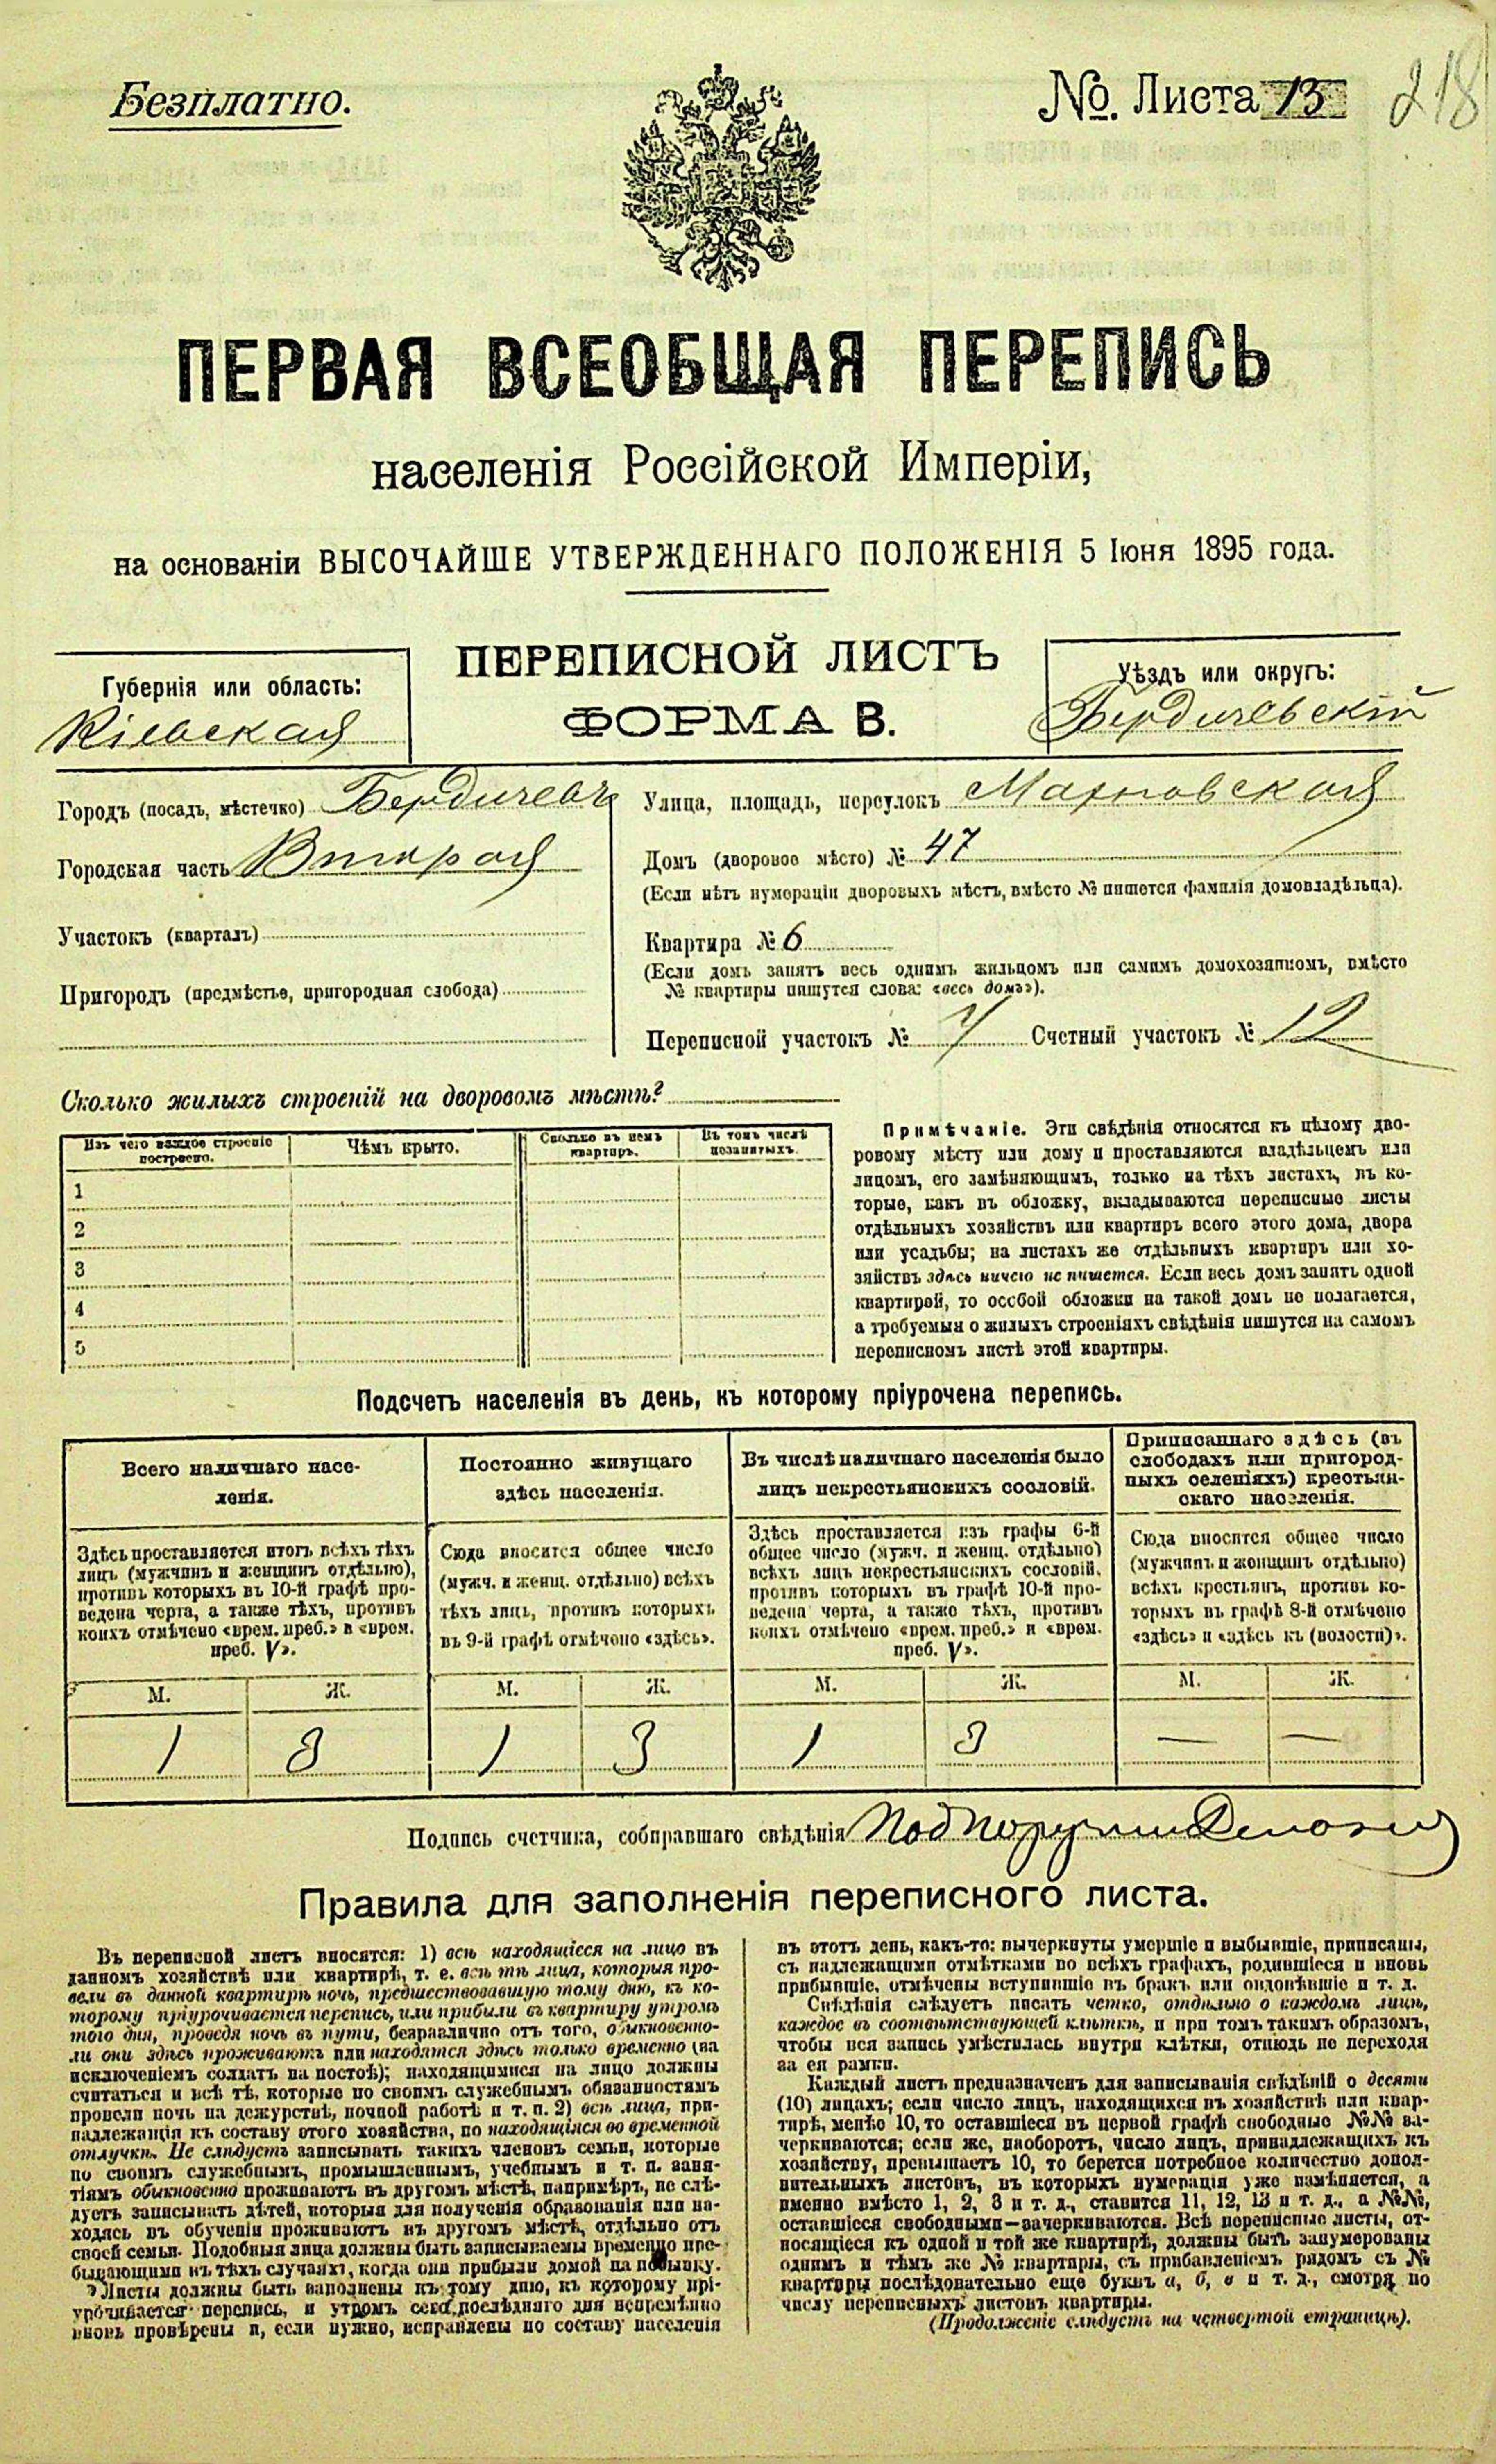 Безплатно.
№. Листа 13
218
ПЕРВАЯ ВСЕОБЩАЯ ПЕРЕПИСЬ
населенія Россійской Имперіи,
на основаніи ВЫСОЧАЙШЕ УТВЕРЖДЕННАГО ПОЛОЖЕНІЯ 5 Іюня 1895 года.
ПЕРЕПИСНОЙ ЛИСТЪ
ФОРМА В.
Губернія или область:
Кіевская
Уѣздъ или округъ:
Бердичевскій
Городъ (посадъ, мѣстечко) Бердичевъ
Городская часть Вторая
Участокъ (кварталъ)
Пригородъ (предмѣстье, пригородная слобода)
Улица, площадь, переулокъ Махновская
Домъ (дворовое мѣсто) № 47
(Если нѣтъ нумераціи дворовыхъ мѣстъ, вмѣсто № пишется фамилія домовладѣльца).
Квартира № 6
(Если домъ занятъ весь однимъ жильцомъ или самимъ домохозяиномъ, вмѣсто
№ квартиры пишутся слова: «весь домъ»).
Переписной участокъ № Счетный участокъ № 12
Сколько жилыхъ строеній на дворовомъ мѣстѣ?
Изъ чего каждое строеніе
построено.
Чѣмъ крыто.
Сколько въ немъ
квартиръ.
Въ томъ числѣ
незанятыхъ.
1
2
3
4
5
Примѣчаніе. Эти свѣдѣнія относятся къ цѣлому дво-
ровому мѣсту или дому и проставляются владѣльцемъ или
лицомъ, его замѣняющимъ, только на тѣхъ листахъ, въ ко-
торые, какъ въ обложку, вкладываются переписные листы
отдѣльныхъ хозяйствъ или квартиръ всего этого дома, двора
или усадьбы; на листахъ же отдѣльныхъ квартиръ или хо-
зяйствъ здѣсь ничего не пишется. Если весь домъ занятъ одной
квартирой, то особой обложки на такой домъ не полагается,
а требуемыя о жилыхъ строеніяхъ свѣдѣнія пишутся на самомъ
переписномъ листѣ этой квартиры.
Подсчетъ населенія въ день, къ которому пріурочена перепись.
Всего наличнаго насе-
ленія.
Здѣсь проставляется итогъ всѣхъ тѣхъ
лицъ (мужчинъ и женщинъ отдѣльно),
противъ которыхъ въ 10-й графѣ про-
ведена черта, а также тѣхъ, противъ
коихъ отмѣчено «врем. преб.» и «врем.
преб. V».
М. Ж.
1 3
Постоянно живущаго
здѣсь населенія.
Сюда вносится общее число
(мужч. и женщ. отдѣльно) всѣхъ
тѣхъ лицъ, противъ которыхъ
въ 9-й графѣ отмѣчено «здѣсь».
М. Ж.
1 3
Въ числѣ наличнаго населенія было
лицъ некрестьянскихъ сословій.
Здѣсь проставляется изъ графы 6-й
общее число (мужч. и женщ. отдѣльно)
всѣхъ лицъ некрестьянскихъ сословій,
противъ которыхъ въ графѣ 10-й про-
ведена черта, а также тѣхъ, противъ
коихъ отмѣчено «врем. преб.» и «врем.
преб. V».
М. Ж.
1 3
Приписаннаго здѣсь (въ
слободахъ или пригород-
ныхъ селеніяхъ) крестьян-
скаго населенія.
Сюда вносится общее число
(мужчинъ и женщинъ отдѣльно)
всѣхъ крестьянъ, противъ ко-
торыхъ въ графѣ 8-й отмѣчено
«здѣсь» и «здѣсь къ (волости)».
М. Ж.
— —
Подпись счетчика, собиравшаго свѣдѣнія
Правила для заполненія переписного листа.
Въ переписной листъ вносятся: 1) всѣ находящіеся на лицо въ
данномъ хозяйствѣ или квартирѣ, т. е. всѣ тѣ лица, которыя про-
вели въ данной квартирѣ ночь, предшествовавшую тому дню, къ ко-
торому пріурочивается перепись, или прибыли въ квартиру утромъ
того дня, проведя ночь въ пути, безразлично отъ того, обыкновенно-
ли они здѣсь проживаютъ или находятся здѣсь только временно (за
исключеніемъ солдатъ на постоѣ); находящимися на лицо должны
считаться и всѣ тѣ, которые по своимъ служебнымъ обязанностямъ
провели ночь на дежурствѣ, ночной работѣ и т. п. 2) всѣ лица, при-
надлежащія къ составу этого хозяйства, но находящіяся во временной
отлучкѣ. Не слѣдуетъ записывать такихъ членовъ семьи, которые
по своимъ служебнымъ, промышленнымъ, учебнымъ и т. п. заня-
тіямъ обыкновенно проживаютъ въ другомъ мѣстѣ, напримѣръ, не слѣ-
дуетъ записывать дѣтей, которыя для полученія образованія или на-
ходясь въ обученіи проживаютъ въ другомъ мѣстѣ, отдѣльно отъ
своей семьи. Подобныя лица должны быть записываемы временно пре-
бывающими въ тѣхъ случаяхъ, когда они прибыли домой на побывку.
Листы должны быть заполнены къ тому дню, къ которому прі-
урочивается перепись, и утромъ сего послѣдняго дня непремѣнно
вновь провѣрены и, если нужно, исправлены по составу населенія
въ этотъ день, какъ-то: вычеркнуты умершіе и выбывшіе, приписаны,
съ надлежащими отмѣтками во всѣхъ графахъ, родившіеся и вновь
прибывшіе, отмѣчены вступившіе въ бракъ или овдовѣвшіе и т. д.
Свѣдѣнія слѣдуетъ писать четко, отдѣльно о каждомъ лицѣ,
каждое въ соотвѣтствующей клѣткѣ, и при томъ такимъ образомъ,
чтобы вся запись умѣстилась внутри клѣтки, отнюдь не переходя
за ея рамки.
Каждый листъ предназначенъ для записыванія свѣдѣній о десяти
(10) лицахъ; если число лицъ, находящихся въ хозяйствѣ или квар-
тирѣ, менѣе 10, то оставшіеся въ первой графѣ свободные №№ за-
черкиваются; если же, наоборотъ, число лицъ, принадлежащихъ къ
хозяйству, превышаетъ 10, то берется потребное количество допол-
нительныхъ листовъ, въ которыхъ нумерація уже измѣняется, а
именно вмѣсто 1, 2, 3 и т. д., ставится 11, 12, 13 и т. д., а №№,
оставшіеся свободными—зачеркиваются. Всѣ переписные листы, от-
носящіеся къ одной и той же квартирѣ, должны быть занумерованы
однимъ и тѣмъ же № квартиры, съ прибавленіемъ рядомъ съ №
квартиры послѣдовательно еще буквъ а, б, в и т. д., смотря по
числу переписныхъ листовъ квартиры.
(Продолженіе слѣдуетъ на четвертой страницѣ).